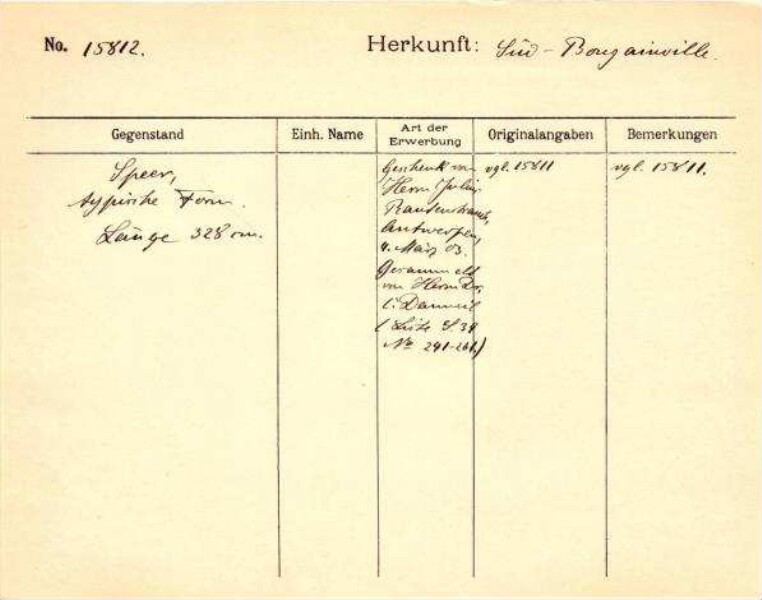 No. 15812.
Herkunft: Süd-Bougainville.
Gegenstand
Einh. Name
Art der Erwerbung
Originalangaben
Bemerkungen
Speer,
typische Form.
Länge 328 cm.
Geschenk von
Herrn
Antwerpen,
4. März 03.
Gesammelt
von Herrn Dr.
(Liste S. 34
No 241-261.)
vgl. 15811
vgl. 15811.